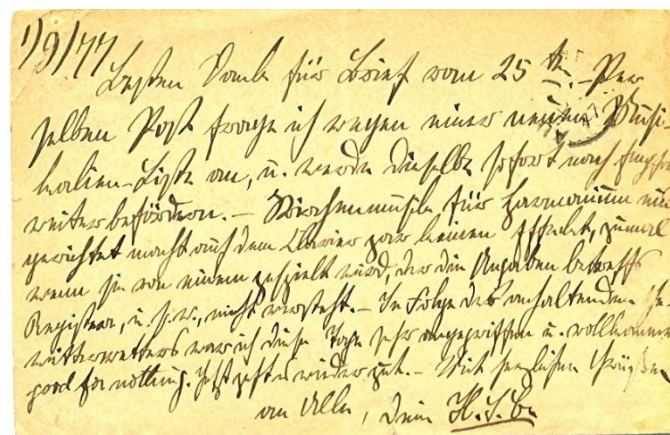 1/9/77
Besten Dank für Brief vom 25ten. – Per
selben Post frage ich wegen einer neuen Musi-
kalien-Liste an, u. werde dieselbe sofort nach Empfang
weiterbefördern. – Kirchenmusik für Harmonium ein-
gerichtet macht auf dem Clavier gar keinen Effekt, zumal
wenn sie von einem gespielt wird, der die Angaben betreffs
Register, u. s. w., nicht versteht. – In Folge des anhaltenden Ge-
witterwetters war ich diese Tage sehr angegriffen u. vollkommen
good for nothing. Jetzt geht's wieder gut. – Mit herzlichen Grüßen
an Alle, Dein